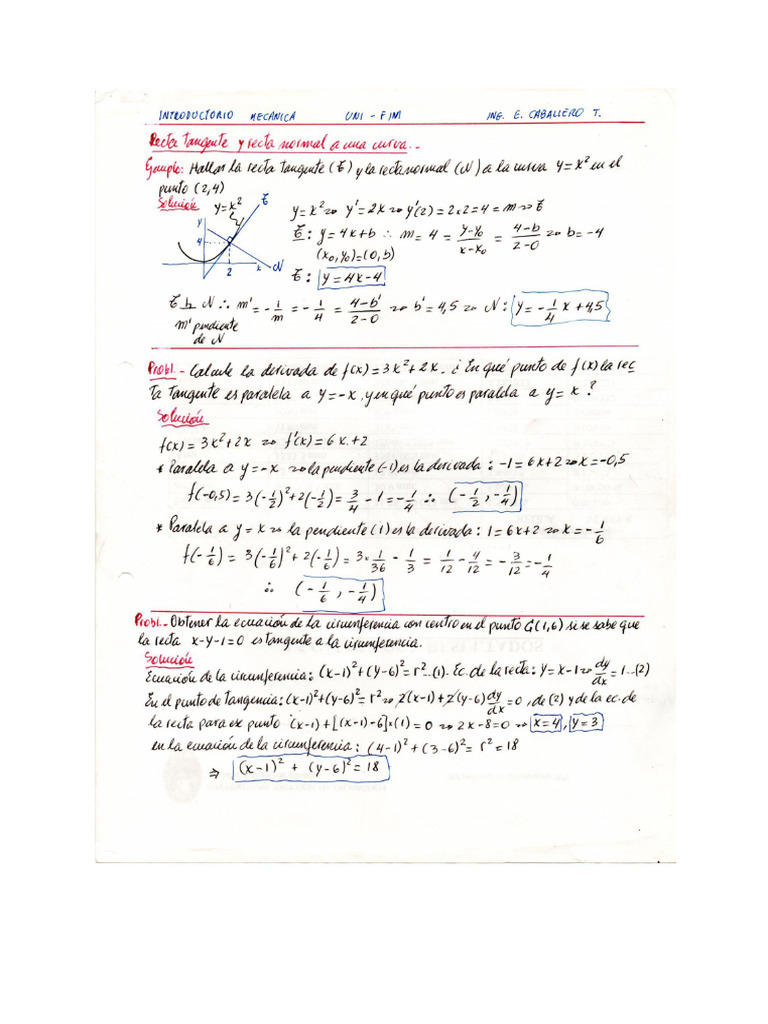 INTRODUCTORIO MECANICA UNI - FIM ING. E. CABALLERO T.
Recta tangente y recta normal a una curva.-
Ejemplo: Hallar la recta tangente (T) y la recta normal (N) a la curva y=x² en el
punto (2,4)
Solución
y=x² T
y 4 2 x N
y=x² ⇒ y'=2x ⇒ y'(2)=2×2=4=m ⇒ T
T: y=4x+b ∴ m=4= (y-y₀)/(x-x₀) = (4-b)/(2-0) ⇒ b=-4
(x₀,y₀)=(0,b)
T: y=4x-4
T ⊥ N ∴ m'=-1/m=-1/4=(4-b')/(2-0) ⇒ b'=4,5 ⇒ N: y=-1/4 x+4,5
m' pendiente
de N
Probl.- Calcule la derivada de f(x)=3x²+2x. ¿En qué punto de f(x) la rec
ta tangente es paralela a y=-x, y en qué punto es paralela a y=x?
Solución
f(x)=3x²+2x ⇒ f'(x)=6x+2
* Paralela a y=-x ⇒ la pendiente (-1) es la derivada: -1=6x+2 ⇒ x=-0,5
f(-0,5)=3(-1/2)²+2(-1/2)=3/4-1=-1/4 ∴ (-1/2,-1/4)
* Paralela a y=x ⇒ la pendiente (1) es la derivada: 1=6x+2 ⇒ x=-1/6
f(-1/6)=3(-1/6)²+2(-1/6)=3×1/36-1/3=1/12-4/12=-3/12=-1/4
∴ (-1/6,-1/4)
Probl.- Obtener la ecuación de la circunferencia con centro en el punto G(1,6) si se sabe que
la recta x-y-1=0 es tangente a la circunferencia.
Solución
Ecuación de la circunferencia: (x-1)²+(y-6)²=r²...(1). Ec. de la recta: y=x-1 ⇒ dy/dx=1...(2)
En el punto de tangencia: (x-1)²+(y-6)²=r² ⇒ 2(x-1)+2(y-6)dy/dx=0, de (2) y de la ec. de
la recta para ese punto (x-1)+[(x-1)-6]×(1)=0 ⇒ 2x-8=0 ⇒ x=4, y=3
en la ecuación de la circunferencia: (4-1)²+(3-6)²=r²=18
⇒ (x-1)²+(y-6)²=18